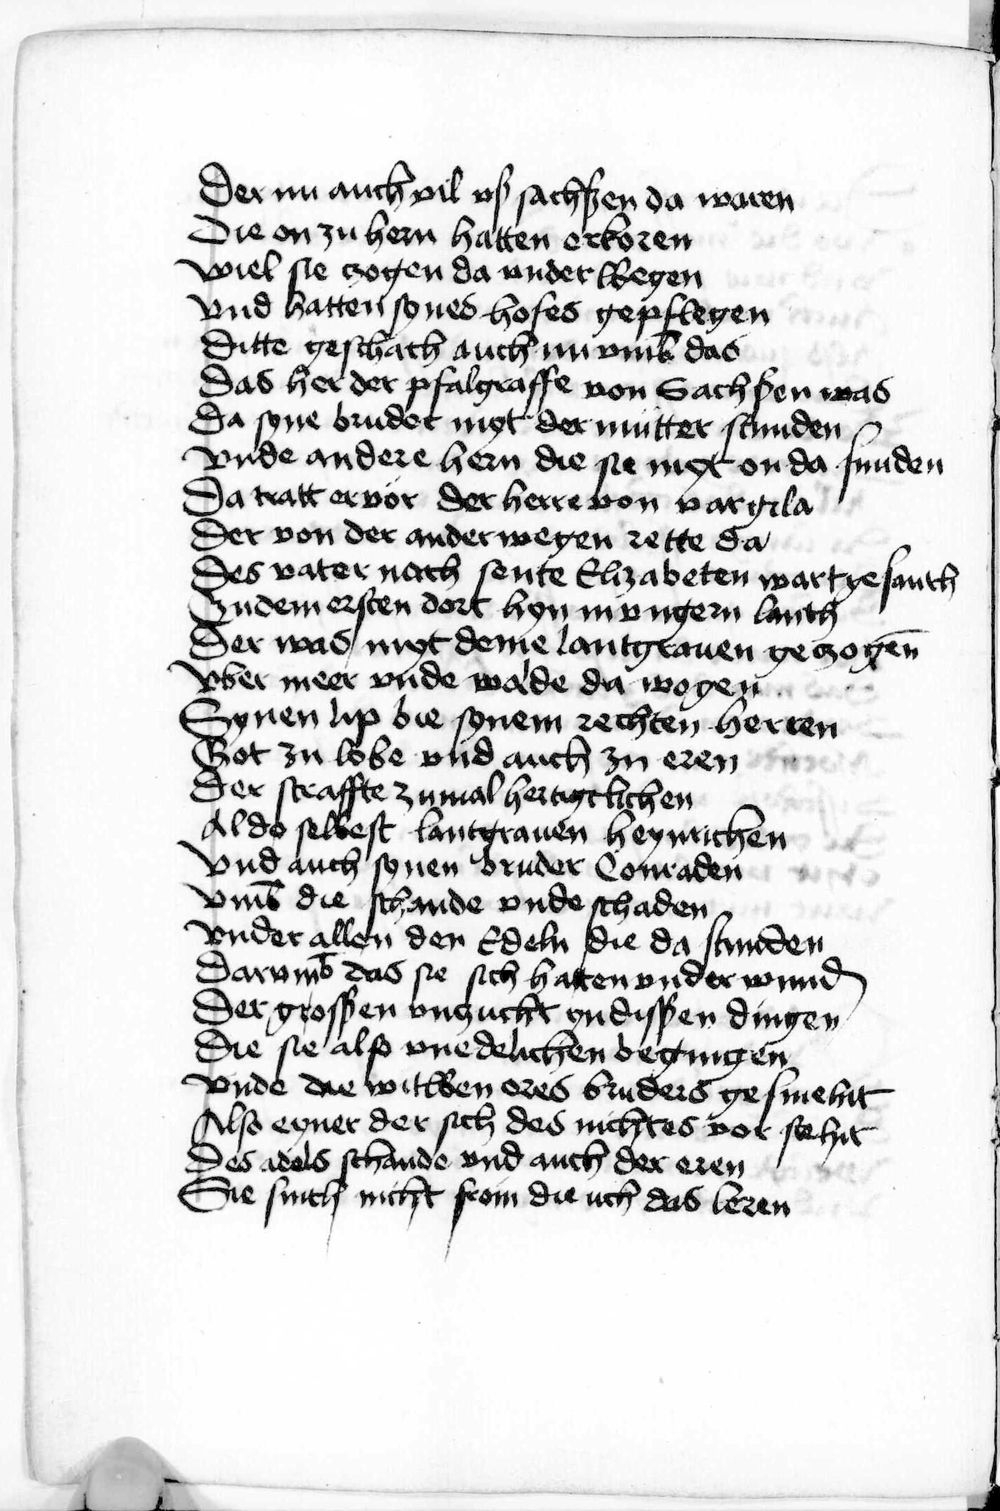 Der nu auch vil vß sachßen da waren
Die on zu hern hatten erkoren
Wiel sie zogen da vnder wegen
Vnd hatten synes hofes gepflegen
Ditte geschach auch nu vmb das
Das her der pfalgraffe von Sachßen was
Da syne bruder myt der mutter stunden
Vnde andere hern die sie myt on da funden
Da tratt er vor der herre von vargila
Der von der anderwegen rette da
Des vater noch sente Elizabeten wart gesanth
Zu dem ersten dort hyn in vngern lanth
Der was myt deme lantgrauen geczogen̄
Vber meer vnde wolde da wogen
Synen lip bie synem rechten herren
Got zu lobe vnd auch zu eren
Der straffte zumal hertigtlichen
Aldo selbest lantgrauen heynrichen
Vnd auch synen bruder Conraden
Vmb die schande vnde schaden
Vnder allen den Edeln die da stunden
Darvmb das sie sich hatten vnder wund
Der großen vnzucht yn dißen dingen
Die sie also vnedelichen begingen
Vnde die witwen ores bruders gesmehit
Also eyner der sich des nichtes vor stehit
Des adels schande vnd auch der eren
Sie sinth nicht from die uch das leren